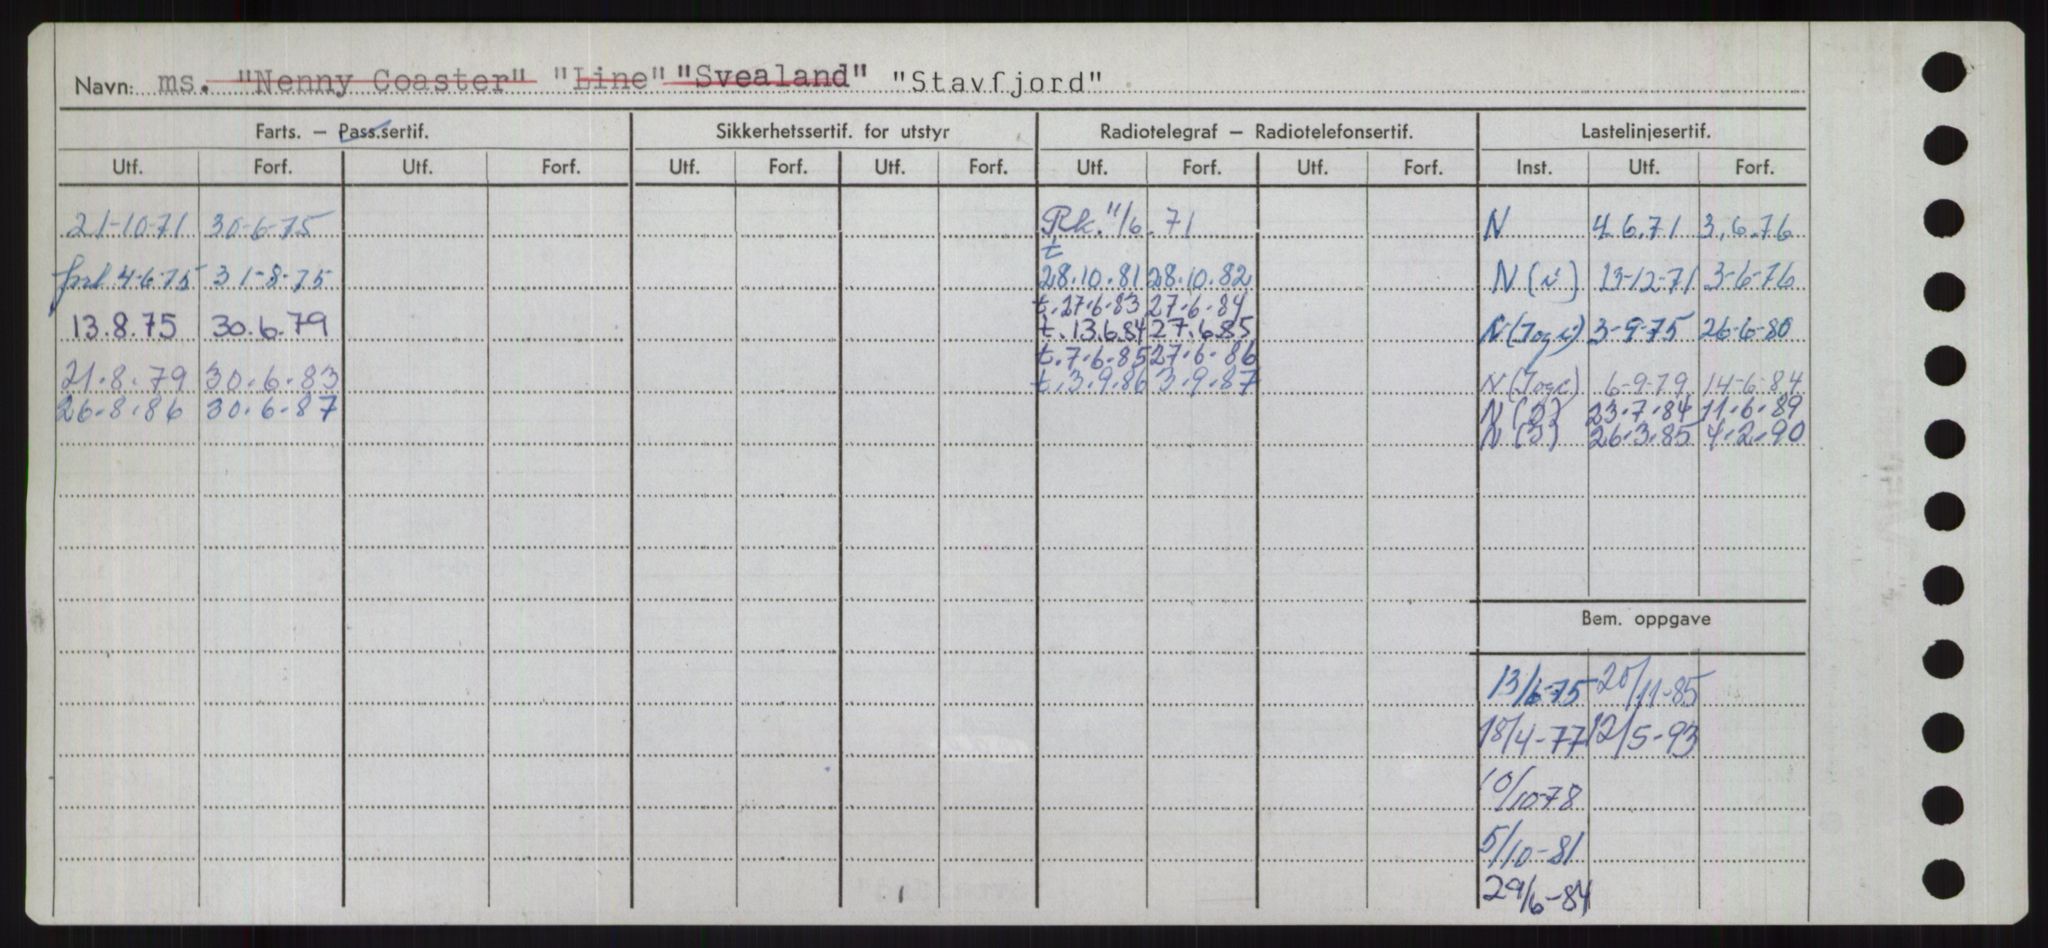 Navn: ms. "Nenny Coaster" "Line" "Svealand" "Stavfjord"
Farts. — Pass.sertif. Sikkerhetssertif. for utstyr Radiotelegraf — Radiotelefonsertif. Lastelinjesertif.
Utf. Forf. Utf. Forf. Utf. Forf. Utf. Forf. Utf. Forf. Utf. Forf. Inst. Utf. Forf.
21-10-71 30-6-75 Rk. 11/6. 71 N 4.6.71 3.6.76
t
4-6-75 31-8-75 28.10.81 28.10.82 N (i) 13-12-71 3-6-76
t. 27.6.83 27.6.84
13.8.75 30.6.79 t. 13.6.84 27.6.85 N 3-9-75 26-6-80
t. 7.6.85 27.6.86
21.8.79 30.6.83 t. 3.9.86 3.9.87 N 6-9-79 14-6-84
26.8.86 30.6.87 N (2) 23.7.84 11.6.89
N (3) 26.3.85 4.2.90
Bem. oppgave
13/6-75 20/11-85
18/4-77 12/5-93
10/10-78
5/10-81
29/6-84